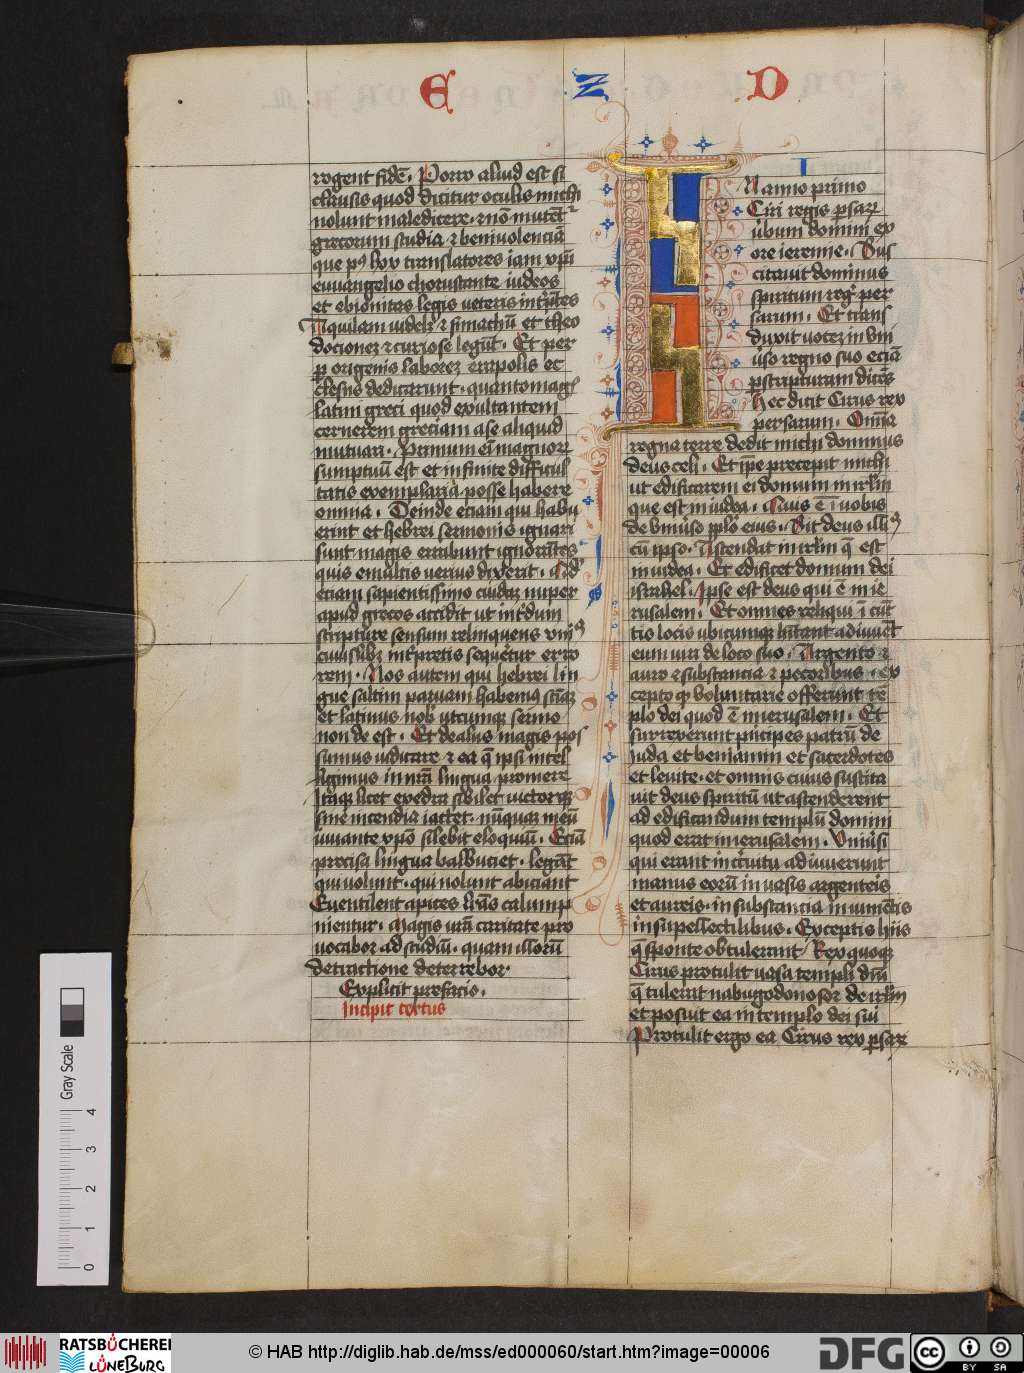 E z D
rogent fidē. Porro aliud est si
clausis quod dicitur oculis michi
nolunt maledicere. et nō
grecorum studia et beniuolenciā
que translatores iam
euuangelio choruscante iudeos
et ebionitas legis veteris
Aquilam et simachū et theo
docionē et curiose legūt. Et per
origenis laborem et
dedicarunt. quantomagꝭ
latini greci quod exultantem
cernerem greciam a se aliquid
mutuari. Primum eī magnoꝝ
sumptuū est et infinite difficul
tatis exemplaria posse habere
omnia. Deinde eciam qui habu
erint et hebrei sermonis ignari
sunt magis errabunt ignorātes
quis e multis verius dixerit.
eciam sapientissimo cuidam nuper
apud grecos accidit ut inꝉdum
scripture sensum relinquens
cuiuslibet inꝉpretis sequeretur erro
rem. Nos autem qui hebrei lin
gue saltim paruam habemus
et latinus nobis utcumque sermo
non de est. Et de aliis magis pos
sumus iudicare et ea q̄ ipsi intel
ligimus in nrā lingua promere
Itaque licet exedra sibilet victorque
sine incendia iactet. nūquam meū
iuuante xpō silebit eloquiū. Eciā
precisa lingua balbuciet. legāt
qui volunt. qui nolunt abiciant
Euentilent apices lrās calump
nientur. Magis urā caritate pro
uocabor ad studiū. quam illorū
detractione deterrebor.
Explicit prefacio.
Incipit textus
I
N anno primo
Ciri regis psaꝝ
ūbum domini ex
ore ieremie. Sus
citauit dominus
spiritum regꝭ per
sarum. Et trans
duxit vocem in vni
ūso regno suo eciā
pscripturam dicēs
Hec dicit Cirus rex
persarum. Omīa
regna terre dedit michi dominus
deus celi. Et ipe precepit michi
ut edificarem ei domum in irlm
que est in iudea. Quis ē ī uobis
de vniūso pplo eius. Sit deus illiꝰ
cū ipso. Ascendat in irlm q̄ est
in iudea. Et edificet domum dei
israhel. Ipse est deus qui ē in ie
rusalem. Et omnes reliqui ī cūc
tis locis ubicumque hītant adiuuēt
eum viri de loco suo. Argento et
auro et substancia et pecoribus. ex
cepto qꝫ voluntarie offerunt tē
plo dei quod ē in ierusalem. Et
surrexerunt pincipes patrū de
iuda et beniamin et sacerdotes
et leuite. et omnis cuius suscita
uit deus spiritū ut ascenderent
ad edificandum templū domini
quod errat in ierusalem. Vniūsi
qui erant in cīrcuitu adiuuerunt
manus eorū in vasis argenteis
et aureis. in substancia in iumētis
in supellectilibus. Exceptis hiis
q̄ sponte obtulerant Rex quoque
Cirus protulit vasa templi dnī
q̄ tulerat nabugodonosor de irlm
et posuit ea in templo dei sui
Protulit ergo ea Cirus rex psaꝝ
Gray Scale
0 1 2 3 4
RATSBÜCHEREI
LÜNEBURG
© HAB http://diglib.hab.de/mss/ed000060/start.htm?image=00006
DFG
cc
BY SA